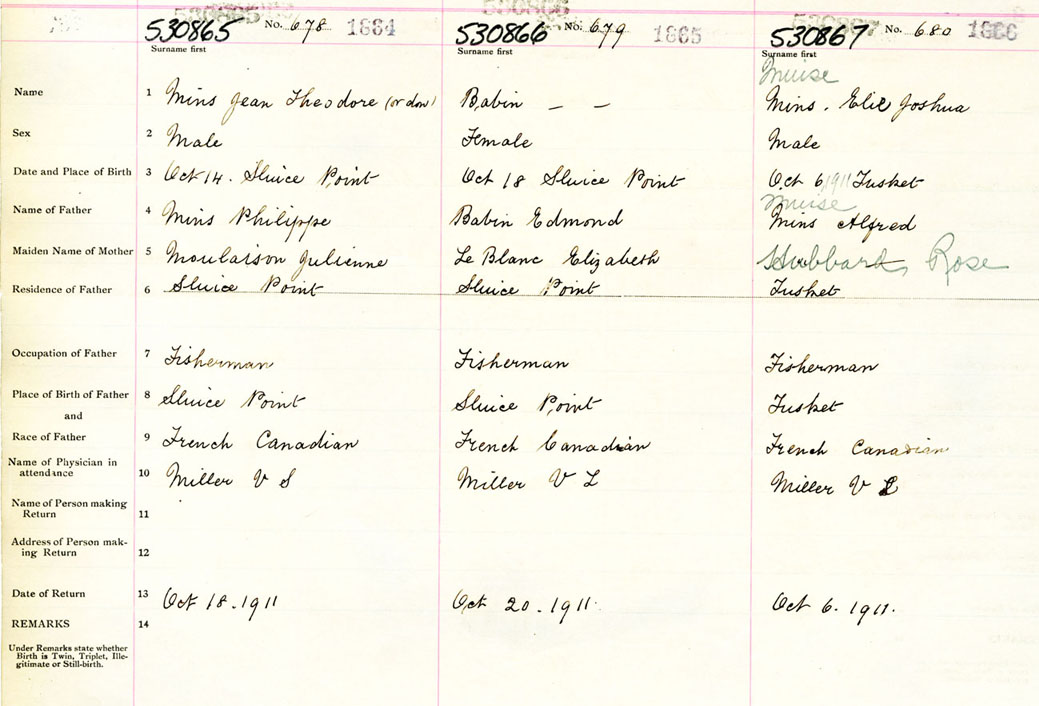 530865 No. 678 1884
530866 No. 679 1885
530867 No. 680 1886
Surname first
Surname first
Surname first
Muise
Name 1 Mins Jean Theodore (or don) Babin — — Mins. Elie Joshua
Sex 2 Male Female Male
Date and Place of Birth 3 Oct 14. Sluice Point Oct 18 Sluice Point Oct 6 1911 Tusket
Muise
Name of Father 4 Mins Philippe Babin Edmond Mins Alfred
Maiden Name of Mother 5 Moulaison Julienne Le Blanc Elizabeth Hubbard, Rose
Residence of Father 6 Sluice Point Sluice Point Tusket
Occupation of Father 7 Fisherman Fisherman Fisherman
Place of Birth of Father 8 Sluice Point Sluice Point Tusket
and
Race of Father 9 French Canadian French Canadian French Canadian
Name of Physician in
attendance 10 Miller V S Miller V L Miller V L
Name of Person making
Return 11
Address of Person mak-
ing Return 12
Date of Return 13 Oct 18. 1911 Oct 20. 1911. Oct 6. 1911.
REMARKS 14
Under Remarks state whether
Birth is Twin, Triplet, Ille-
gitimate or Still-birth.